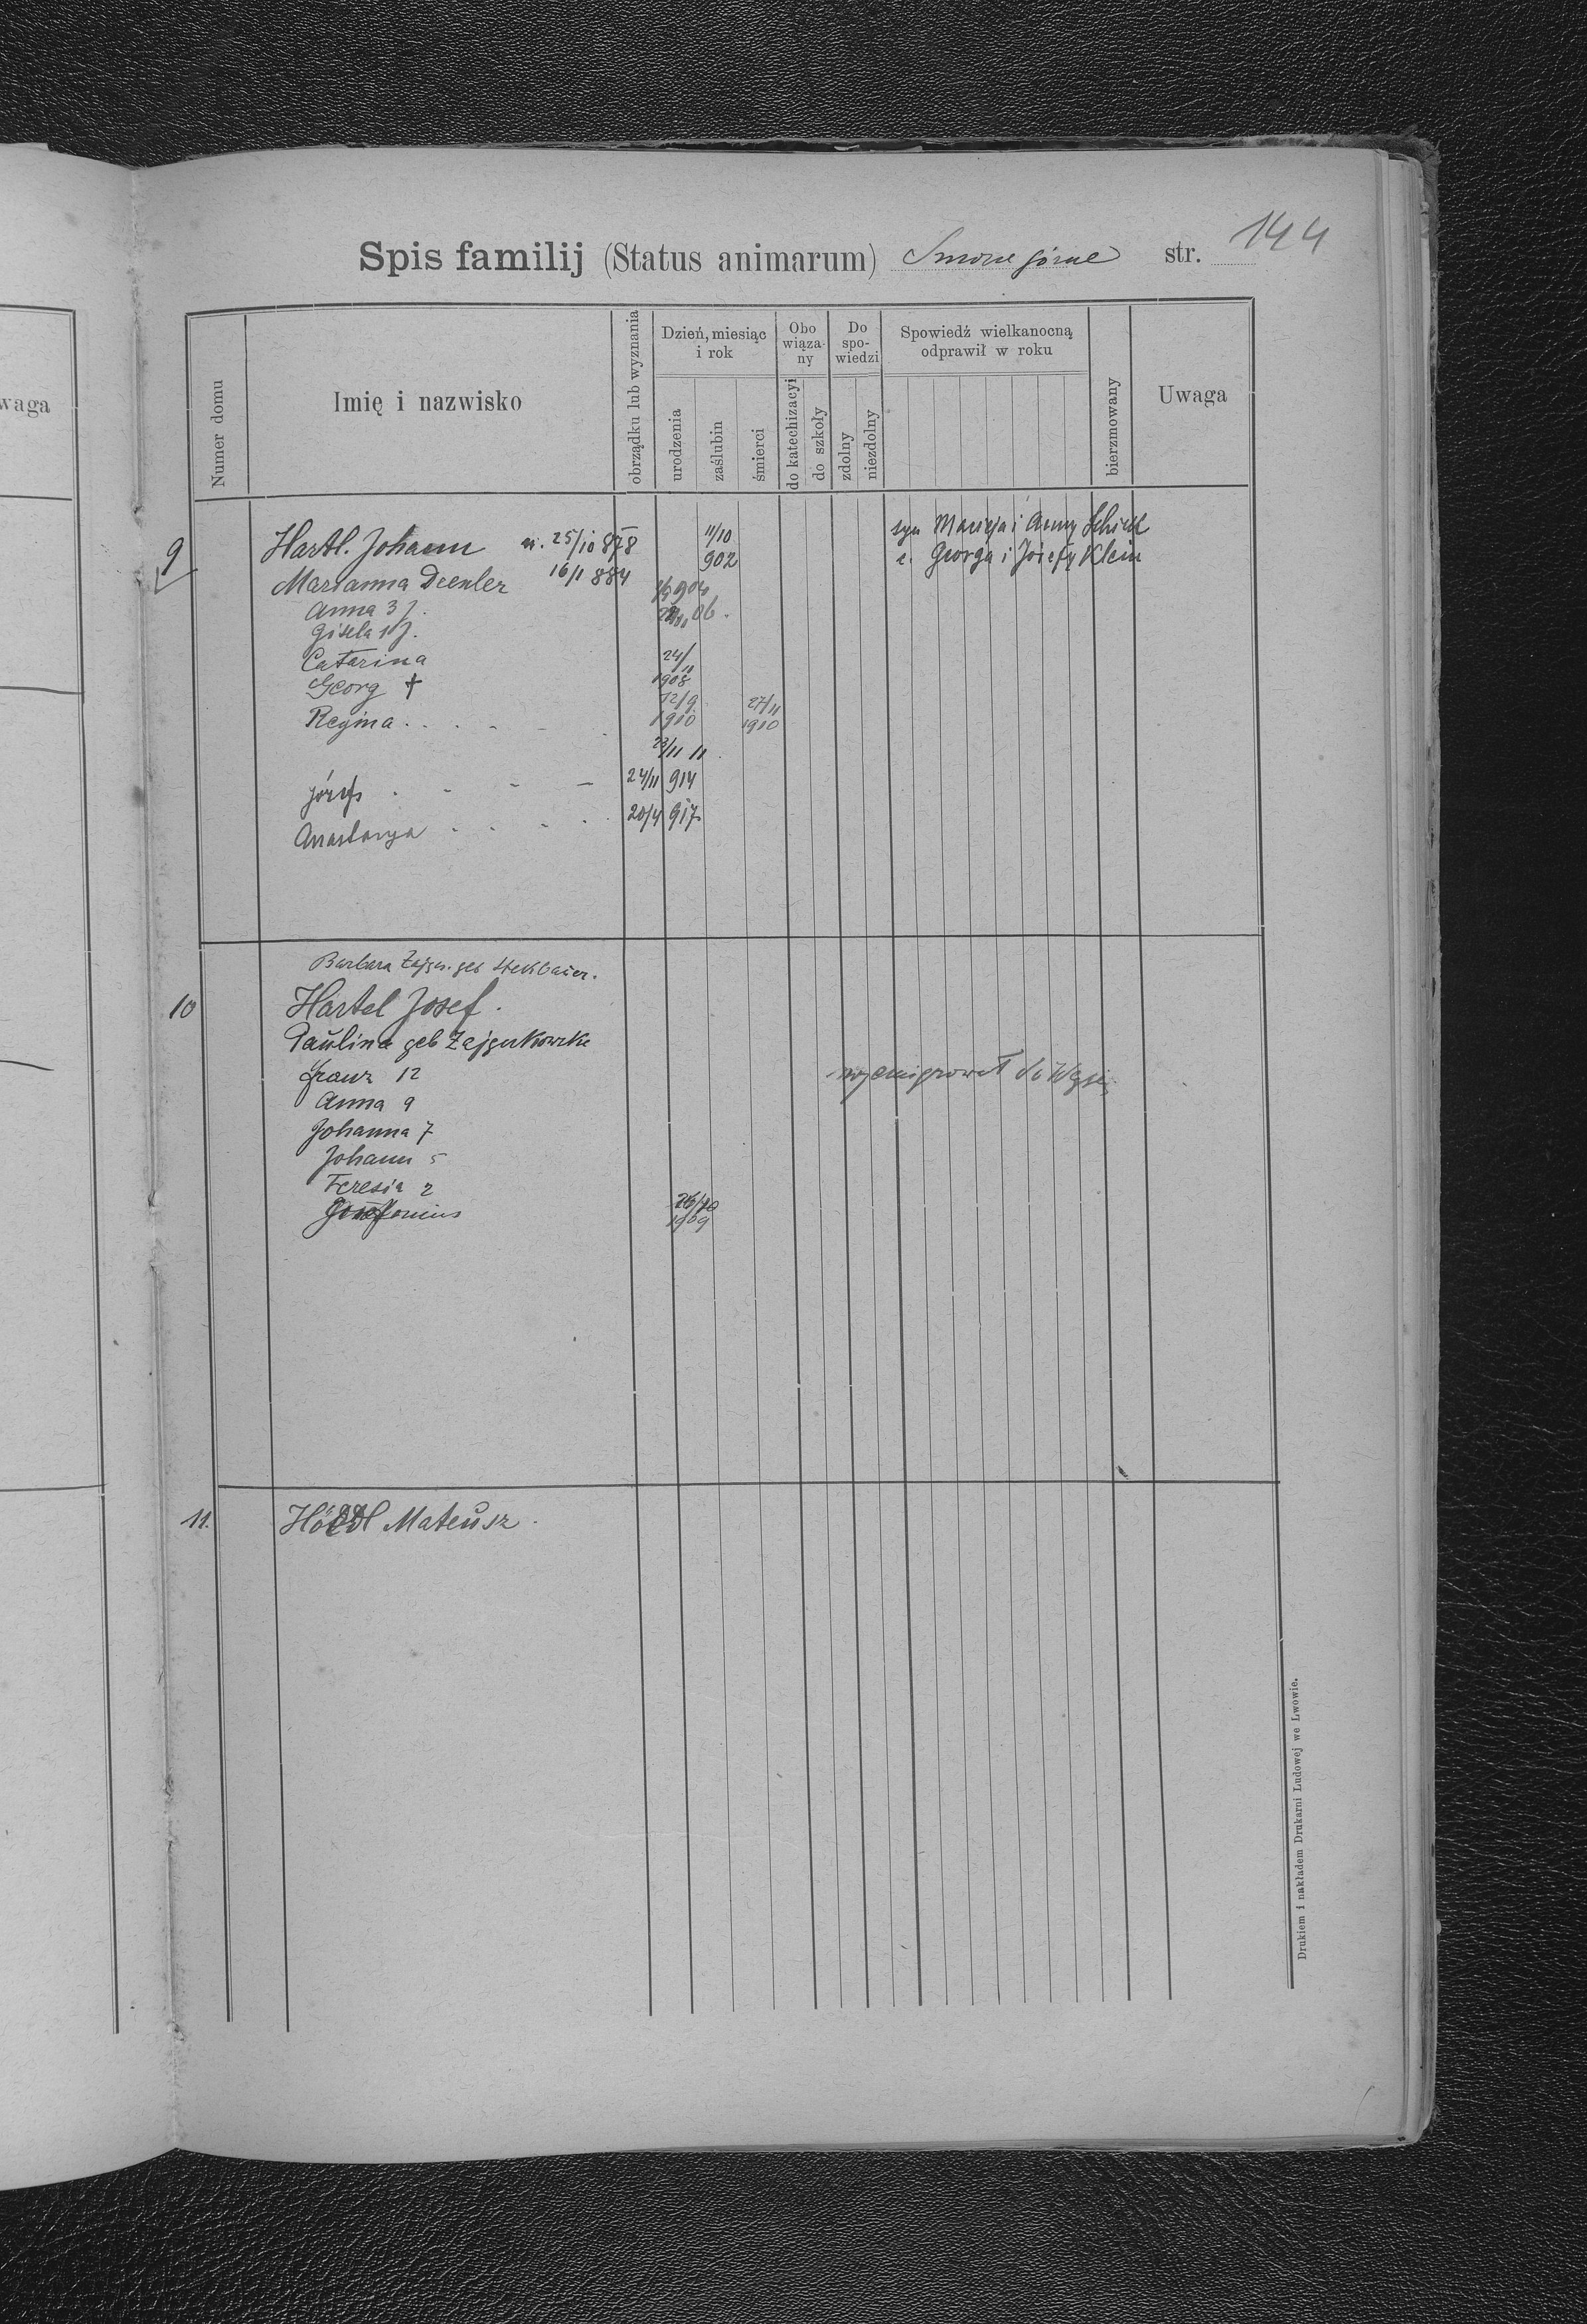 waga
Spis familij (Status animarum) Smorze górne str. 144
Numer domu
Imię i nazwisko
obrządku lub wyznania
Dzień, miesiąc i rok
urodzenia
zaślubin
śmierci
Obowiąza-ny
do katechizacyi
do szkoły
Do spo-wiedzi
zdolny
niezdolny
Spowiedź wielkanocną
odprawił w roku
bierzmowany
Uwaga
9 Hartl. Johann 25/10 878 11/10 902 syn Macieja i Anny Schickl
Marianna Drexler 16/1 884 c. Georga i Józefy Klein
Anna 3 J. 904
Gisela 1 J. 06.
Catarina 24/11 1908
Georg † 12/9 1910 27/11 1910
Regina . . . . 23/11 11
Józef . - - - 24/11 914
Anastazya . . . . 20/4 917
Barbara geb Hekbaier.
10 Hartel Josef.
Paulina geb
Franz 12 wyemigrował do
Anna 9
Johanna 7
Johann 5
Teresia 2
26/10 1909
11. Mateusz.
Drukiem i nakładem Drukarni Ludowej we Lwowie.